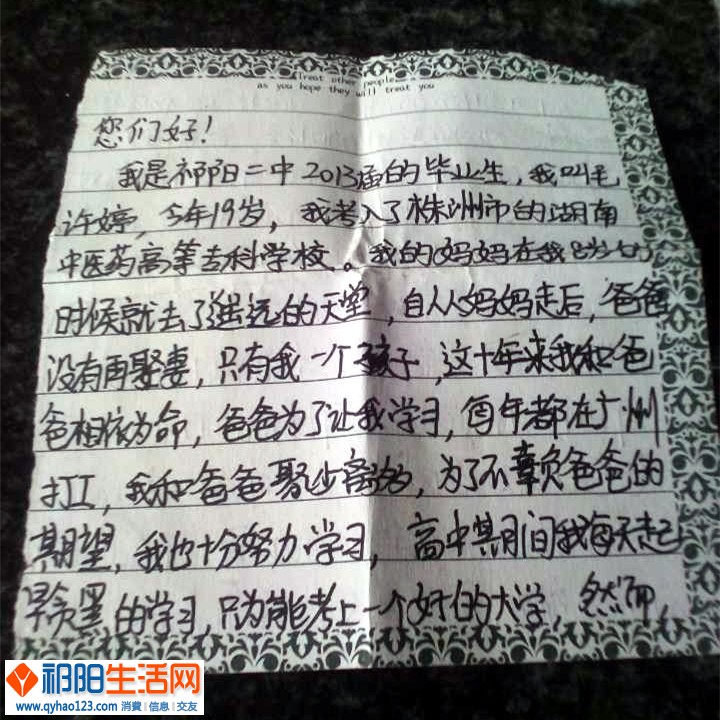 Treat other people
as you hope they will treat you
您们好！
我是祁阳二中2013届的毕业生，我叫毛
许婷，今年19岁，我考入了株洲市的湖南
中医药高等专科学校。我的妈妈在我8岁的
时候就去了遥远的天堂，自从妈妈走后，爸爸
没有再娶妻，只有我一个孩子，这十年来我和爸
爸相依为命，爸爸为了让我学习，每年都在广州
打工，我和爸爸聚少离多，为了不辜负爸爸的
期望，我也十分努力学习，高中期间我每天起
早贪黑的学习，只为能考上一个好的大学，然而，
祁阳生活网
www.qyhao123.com 消費|信息|交友